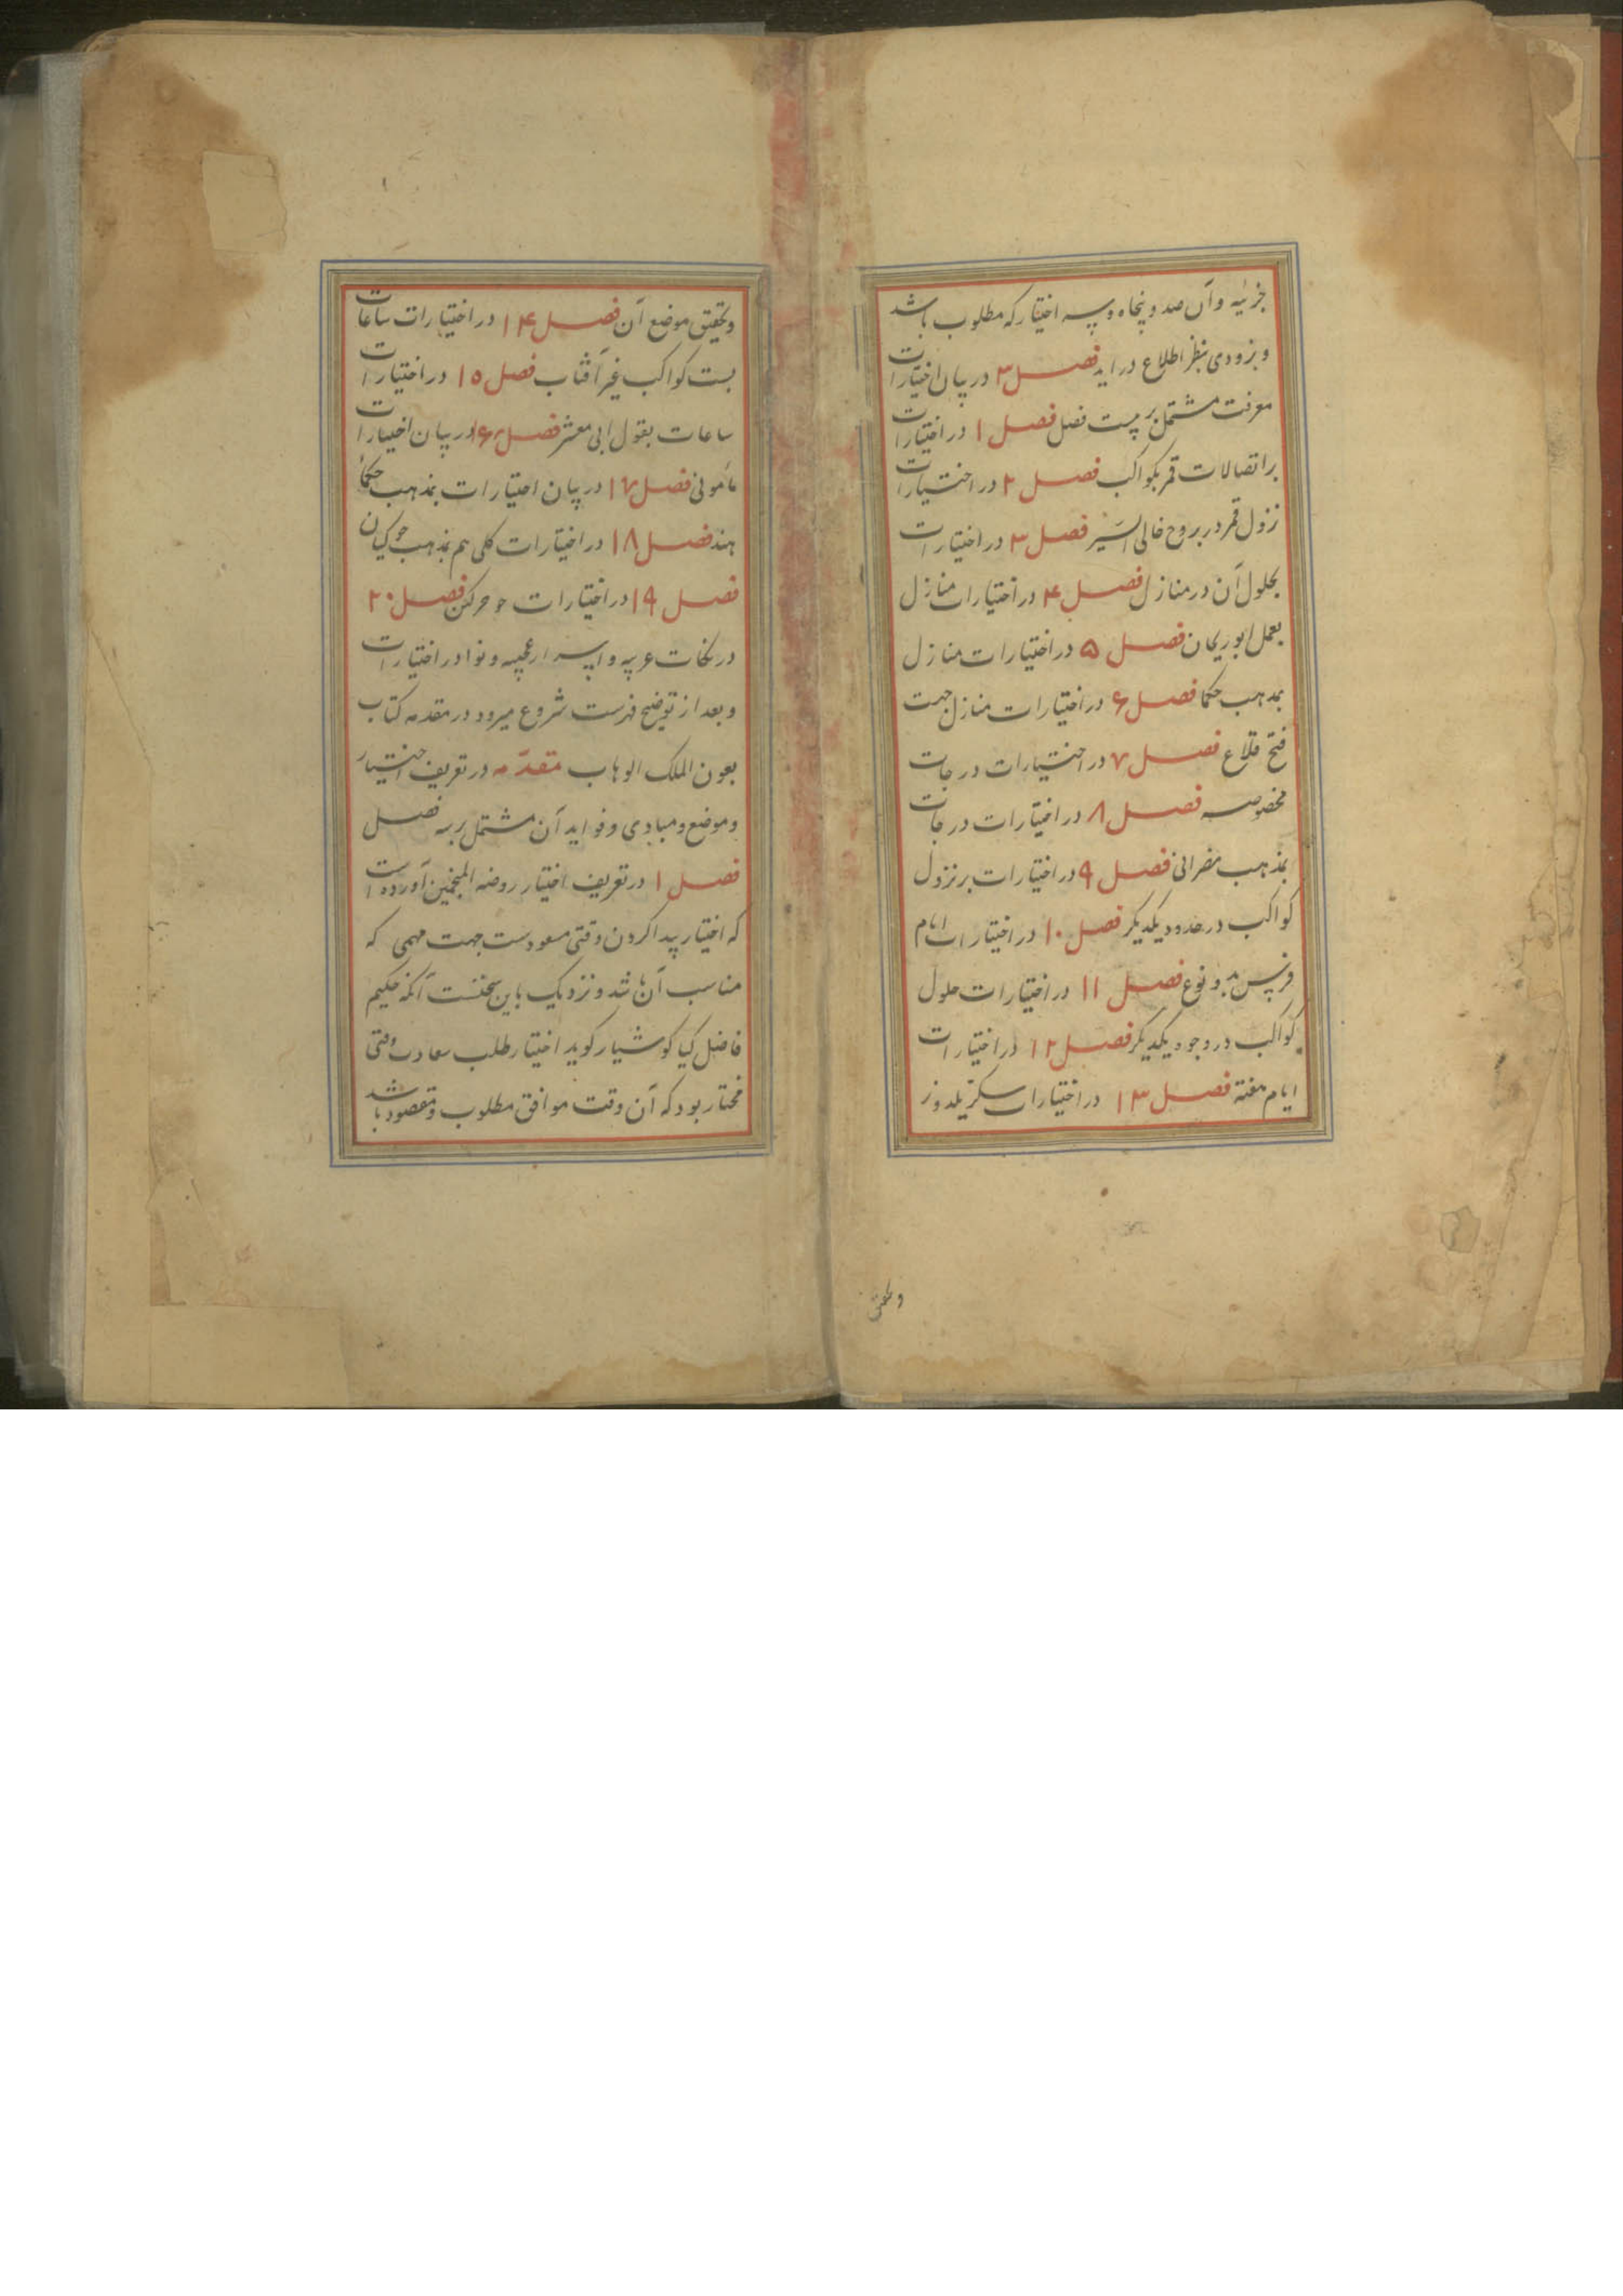 جزئیه و آن صد و پنجاه و سه اختیار که مطلوب باشد
و بزودی بنظر اطلاع در اید فصل ۳ در بیان اختیارات
معرفت مشتمل بر بیست فصل فصل ۱ در اختیارات
بر اتصالات قمر بکواکب فصل ۲ در اختیارات
نزول قمر در بروج خالی السیر فصل ۳ در اختیارات
بحلول آن در منازل فصل ۴ در اختیارات منازل
بعمل ابو ریحان فصل ۵ در اختیارات منازل
بمذهب حکما فصل ۶ در اختیارات منازل جهت
فتح قلاع فصل ۷ در اختیارات درجات
مخصوصه فصل ۸ در اختیارات درجات
بمذهب فصل ۹ در اختیارات بر نزول
کواکب در حدود یکدیگر فصل ۱۰ در اختیارات ایام
فرس بدو نوع فصل ۱۱ در اختیارات حلول
کواکب در وجوه یکدیگر فصل ۱۲ در اختیارات
ایام هفته فصل ۱۳ در اختیارات سکزیلدوز
وتحقیق
وتحقیق موضع آن فصل ۱۴ در اختیارات ساعات
بست کواکب غیر آفتاب فصل ۱۵ در اختیارات
ساعات بقول ابی معشر فصل ۱۶ در بیان اختیارات
مأمونی فصل ۱۷ در بیان اختیارات بمذهب حکماء
هند فصل ۱۸ در اختیارات کلی هم بمذهب جوکیان
فصل ۱۹ در اختیارات فصل ۲۰
در نکات غریبه و اسرار عجیبه و نوادر اختیارات
و بعد از توضیح فهرست شروع میرود در مقدمه کتاب
بعون الملک الوهاب مقدّمه در تعریف اختیار
وموضع ومبادی وفواید آن مشتمل بر سه فصل
فصل ۱ در تعریف اختیار روضه المنجمین آورده است
که اختیار پیدا کردن وقتی مسعودست جهت مهمی که
مناسب آن باشد و نزدیک باین سخنست آنکه حکیم
فاضل کیا کوشیار کوید اختیار طلب سعادت وقتی
مختار بود که آن وقت موافق مطلوب و مقصود باشد